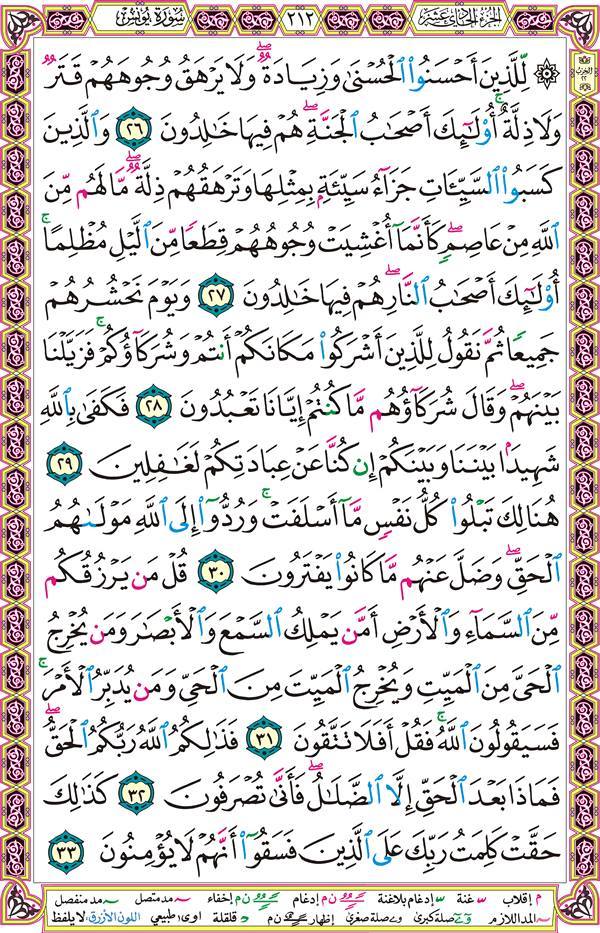 الجزء الحادي عشر
٢١٢
سورة يونس
الحزب
٢٢
۞ لِّلَّذِينَ أَحْسَنُوا۟ ٱلْحُسْنَىٰ وَزِيَادَةٌۖ وَلَا يَرْهَقُ وُجُوهَهُمْ قَتَرٌ
وَلَا ذِلَّةٌۚ أُو۟لَـٰٓئِكَ أَصْحَـٰبُ ٱلْجَنَّةِۖ هُمْ فِيهَا خَـٰلِدُونَ ٢٦ وَٱلَّذِينَ
كَسَبُوا۟ ٱلسَّيِّـَٔاتِ جَزَآءُ سَيِّئَةٍۭ بِمِثْلِهَا وَتَرْهَقُهُمْ ذِلَّةٌۖ مَّا لَهُم مِّنَ
ٱللَّهِ مِنْ عَاصِمٍۖ كَأَنَّمَآ أُغْشِيَتْ وُجُوهُهُمْ قِطَعًا مِّنَ ٱلَّيْلِ مُظْلِمًاۚ
أُو۟لَـٰٓئِكَ أَصْحَـٰبُ ٱلنَّارِۖ هُمْ فِيهَا خَـٰلِدُونَ ٢٧ وَيَوْمَ نَحْشُرُهُمْ
جَمِيعًا ثُمَّ نَقُولُ لِلَّذِينَ أَشْرَكُوا۟ مَكَانَكُمْ أَنتُمْ وَشُرَكَآؤُكُمْۚ فَزَيَّلْنَا
بَيْنَهُمْۖ وَقَالَ شُرَكَآؤُهُم مَّا كُنتُمْ إِيَّانَا تَعْبُدُونَ ٢٨ فَكَفَىٰ بِٱللَّهِ
شَهِيدًۢا بَيْنَنَا وَبَيْنَكُمْ إِن كُنَّا عَنْ عِبَادَتِكُمْ لَغَـٰفِلِينَ ٢٩
هُنَالِكَ تَبْلُوا۟ كُلُّ نَفْسٍ مَّآ أَسْلَفَتْۚ وَرُدُّوٓا۟ إِلَى ٱللَّهِ مَوْلَىٰهُمُ
ٱلْحَقِّۖ وَضَلَّ عَنْهُم مَّا كَانُوا۟ يَفْتَرُونَ ٣٠ قُلْ مَن يَرْزُقُكُم
مِّنَ ٱلسَّمَآءِ وَٱلْأَرْضِ أَمَّن يَمْلِكُ ٱلسَّمْعَ وَٱلْأَبْصَـٰرَ وَمَن يُخْرِجُ
ٱلْحَىَّ مِنَ ٱلْمَيِّتِ وَيُخْرِجُ ٱلْمَيِّتَ مِنَ ٱلْحَىِّ وَمَن يُدَبِّرُ ٱلْأَمْرَۚ
فَسَيَقُولُونَ ٱللَّهُۚ فَقُلْ أَفَلَا تَتَّقُونَ ٣١ فَذَٰلِكُمُ ٱللَّهُ رَبُّكُمُ ٱلْحَقُّۖ
فَمَاذَا بَعْدَ ٱلْحَقِّ إِلَّا ٱلضَّلَـٰلُۖ فَأَنَّىٰ تُصْرَفُونَ ٣٢ كَذَٰلِكَ
حَقَّتْ كَلِمَتُ رَبِّكَ عَلَى ٱلَّذِينَ فَسَقُوٓا۟ أَنَّهُمْ لَا يُؤْمِنُونَ ٣٣
م إقلاب غنة إدغام بلاغنة ن م إدغام ن م إخفاء مد متصل مد منفصل
المد اللازم صلة كبرى صلة صغرى إظهار ن م قلقلة اوى طبيعي اللون الأزرق: لا يلفظ